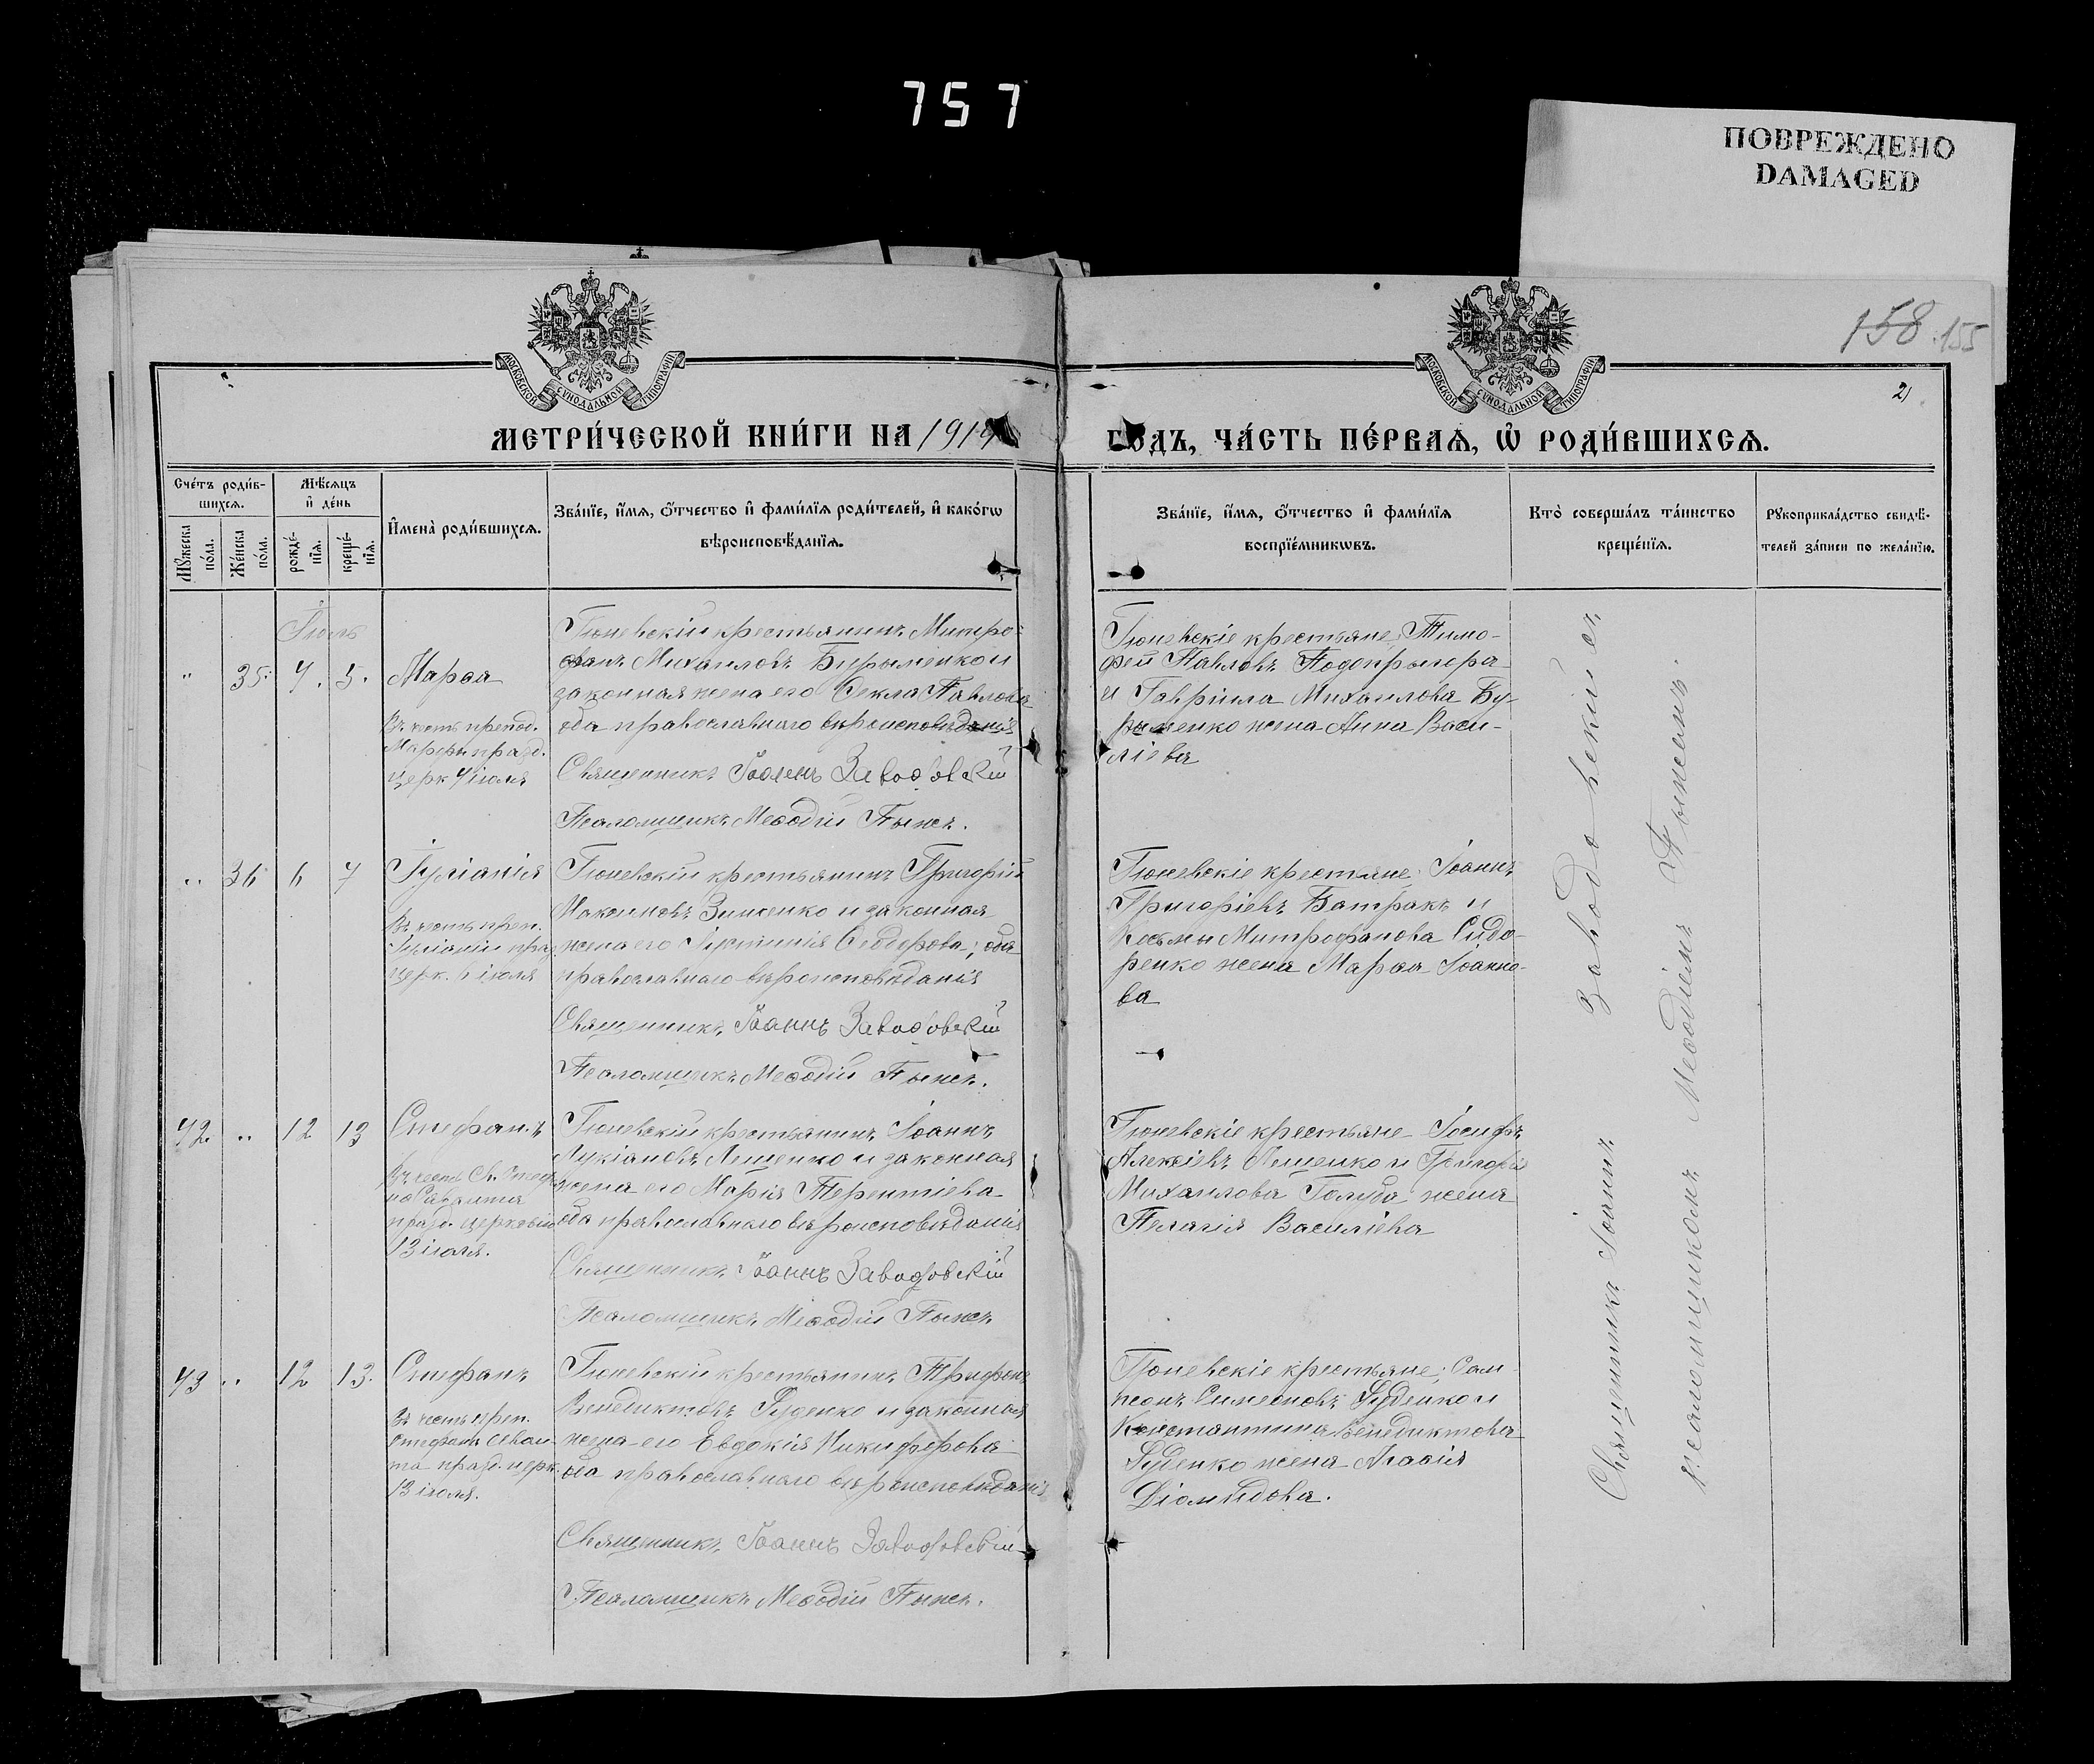 757
ПОВРЕЖДЕНО
DAMAGED
158 155
21
МОСКОВСКОЙ СѴНОДАЛЬНОЙ ТИПОГРАФІИ
МОСКОВСКОЙ СѴНОДАЛЬНОЙ ТИПОГРАФІИ
МЕТРИ́ЧЕСКОЙ КНИ́ГИ НА 1914
ГОДЪ, ЧА́СТЬ ПЕ́РВАѦ, Ѡ҆ РОДИ́ВШИХСѦ.
Сче́тъ роди́в-
шихсѧ.
Мꙋ́жеска по́ла.
Же́нска по́ла.
Мѣ́сѧцъ и҆ де́нь
рожде́-нїѧ.
креще́-нїѧ.
И҆мена̀ роди́вшихсѧ.
Зва́нїе, и҆́мѧ, ѻ҆́тчество и҆ фами́лїѧ роди́телей, и҆ како́гѡ
вѣроисповѣ́данїѧ.
Зва́нїе, и҆́мѧ, ѻ҆́тчество и҆ фами́лїѧ
воспрїе́мникѡвъ.
Кто̀ соверша́лъ та́инство
креще́нїѧ.
Рꙋкоприкла́дство свидѣ́-
телей за́писи по жела́нїю.
Іюль
" 35. 4. 5. Марѳа
Въ честь препод.
Марѳы празд.
церк 4 іюля
Гюневскій крестьянинъ Митро-
фанъ Михаиловъ Бурыменко и
законная жена его Ѳекла Павлова
оба православнаго вѣроисповѣданія
Священникъ Іоаннъ Заводовскій
Псаломщикъ Меѳодій Пынсъ.
Гюневскіе крестьяне, Тимо-
фей Павловъ Подопрыгора
и Гавріила Михаилова Бу-
рыменко жена Анна Васи-
ліева
" 36 6 7 Іуліанія
Въ честь преп.
Іуліаніи празд.
церк. 6 іюля
Гюневскій крестьянинъ Григорій
Максимовъ Зинченко и законная
жена его Іустинія Ѳеодорова; оба
православнаго вѣроисповѣданія
Священникъ Іоаннъ Заводовскій
Псаломщикъ Меѳодій Пынсъ.
Гюневскіе крестьяне: Іоаннъ
Григоріевъ Батракъ и
Косьмы Митрофанова Сидо-
ренко жена Марѳа Іоанно-
ва
42. " 12 13 Стефанъ
Въ честь Св. Стеф-
на Савваита
празд. церковью
13 іюля.
Гюневскій крестьянинъ Іоаннъ
Лукіановъ Лещенко и законная
жена его Марія Терентіева
оба православнаго вѣроисповѣданія
Священникъ Іоаннъ Заводовскій
Псаломщикъ Меѳодій Пынсъ
Гюневскіе крестьяне Іосифъ
Алексіевъ Лещенко и Григорія
Михаилова Голуба жена
Пелагія Василіева
43 " 12 13. Стефанъ
Въ честь преп.
Стефана Саваи-
та празд. церк.
13 іюля.
Гюневскій крестьянинъ Трифонъ
Венедиктовъ Гуденко и законная
жена его Евдокія Никифорова
оба православнаго вѣроисповѣданія
Священникъ Іоаннъ Заводовскій
Псаломщикъ Меѳодій Пынсъ.
Гюневскіе крестьяне: Сам-
псонъ Симеоновъ Гуденко и
Константина Венедиктова
Гуденко жена Агаѳія
Діомидова.
Священникъ Іоаннъ Заводовскій съ
псаломщикомъ Меѳодіемъ Пынсомъ.